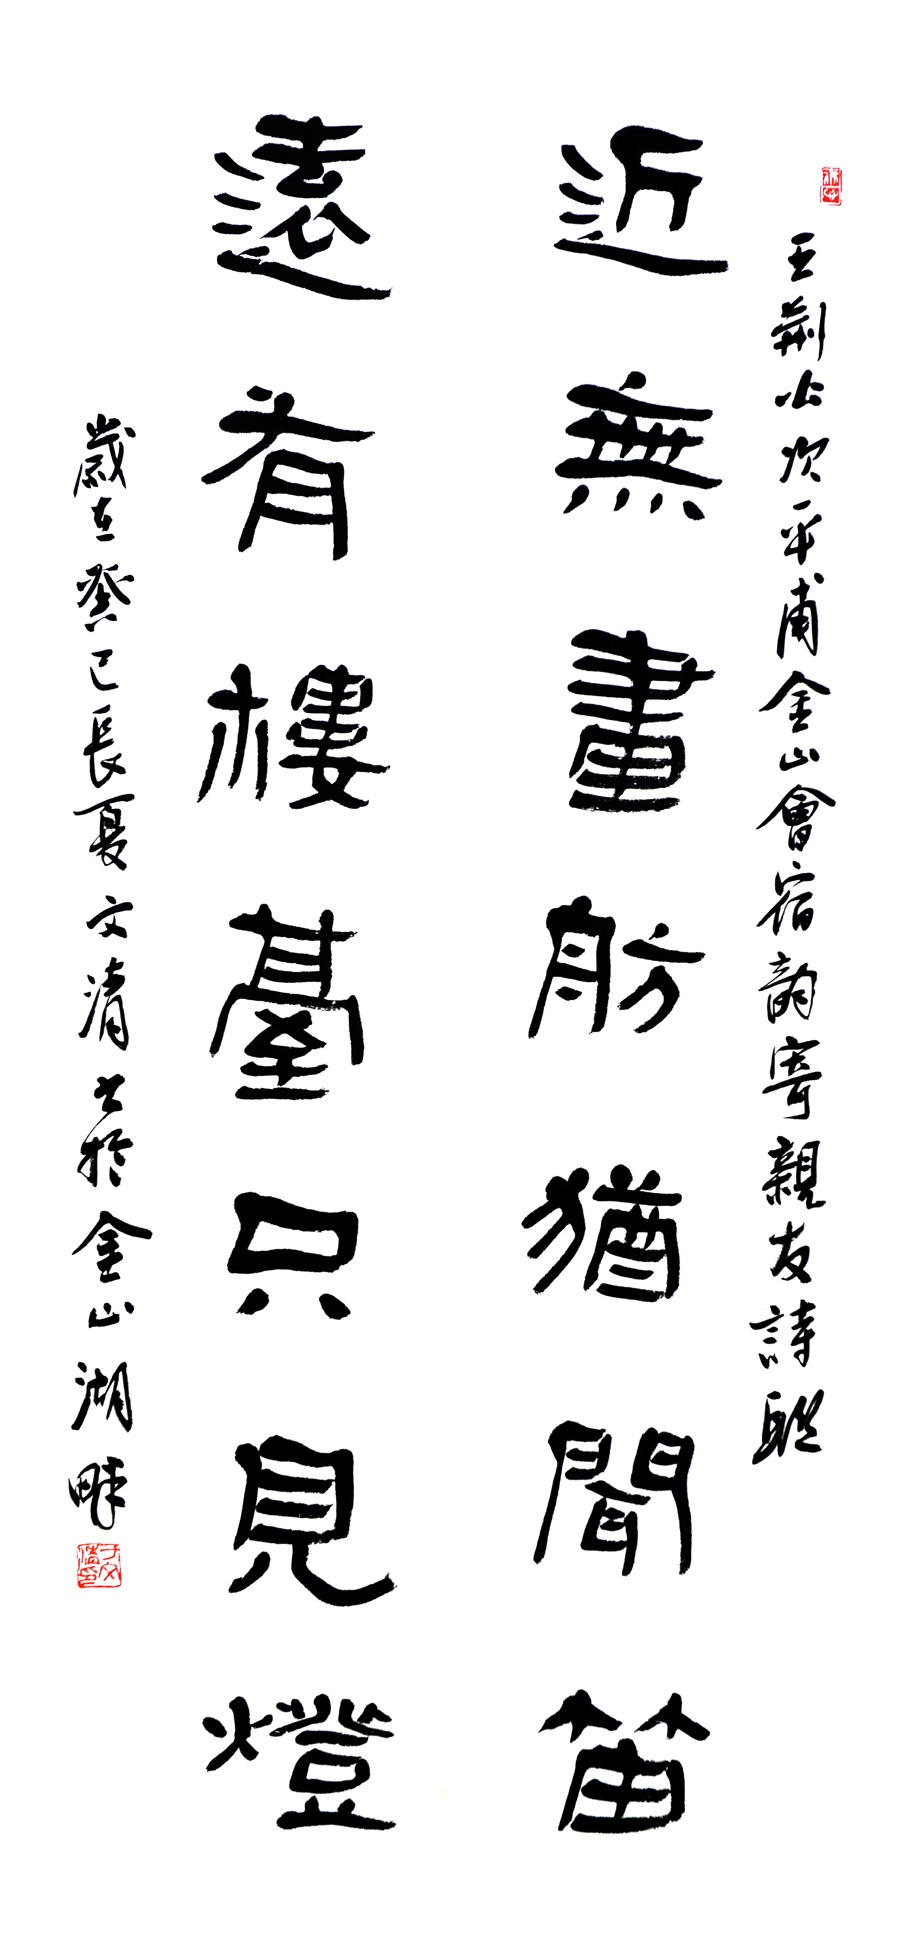 王荆公次平甫金山會宿韵寄親友詩聯
近無畫舫猶聞笛
遠有樓臺只見燈
歲在癸巳長夏文清书於金山湖畔
于文清印